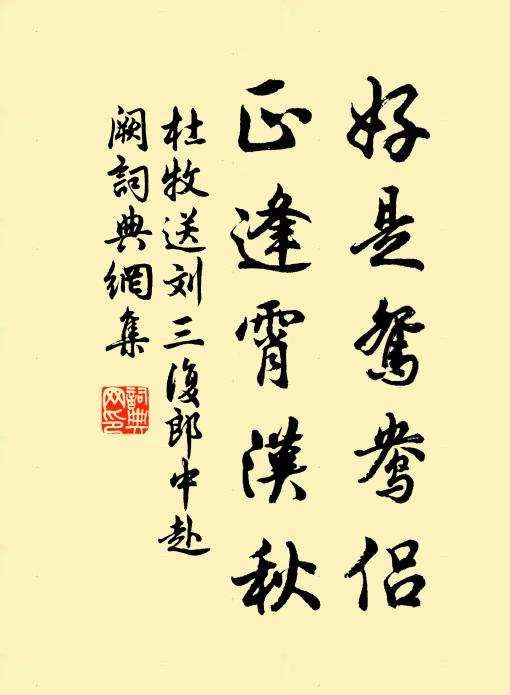 好是鴛鴦侣
正逢霄漢秋
杜牧送刘三復郎中赴
闕詞典網集
詞典
网印